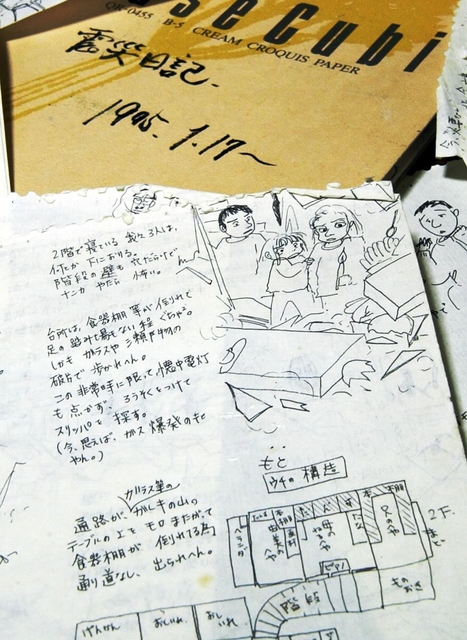 useCubi
QR-0455 B-5 CREAM CROQUIS PAPER
震災日記.
1995.1.17〜
2階で寝ている 我々3人は、
何とか下におりる。
階段の壁も
ナンカ やたら 怖い。
台所は、食器棚等が倒れて
足の踏み場もない程 ぐちゃ。
しかも ガラスや瀬戸物の
破片で 歩かれへん。
この非常の時に限って 懐中電灯
も点かず ろうそくをつけて
スリッパを 探す。
(今、思えば、ガス爆発のもと
やん。)
ガラス等の
通路が、ガレキの山。
テーブルの上を モロ またがって
食器棚が 倒れてる為
通り道なし、出られへん。
もと
ウチの構造
ベランダ
本棚
母の
本
兄のへや
2F.
まど
ピアノ
階段
ものおき
げんかん
おしいれ
おしいれ